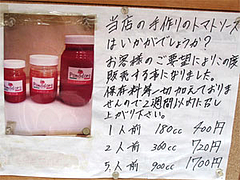 当店の手作りのトマトソース
はいかがでしょうか?
お客様のご要望によりこの度
販売する事になりました。
保存料等一切加えておりま
せんので2週間以内にお召し
上がり下さい。
1人前 180cc 400円
2人前 360cc 720円
5人前 900cc 1700円